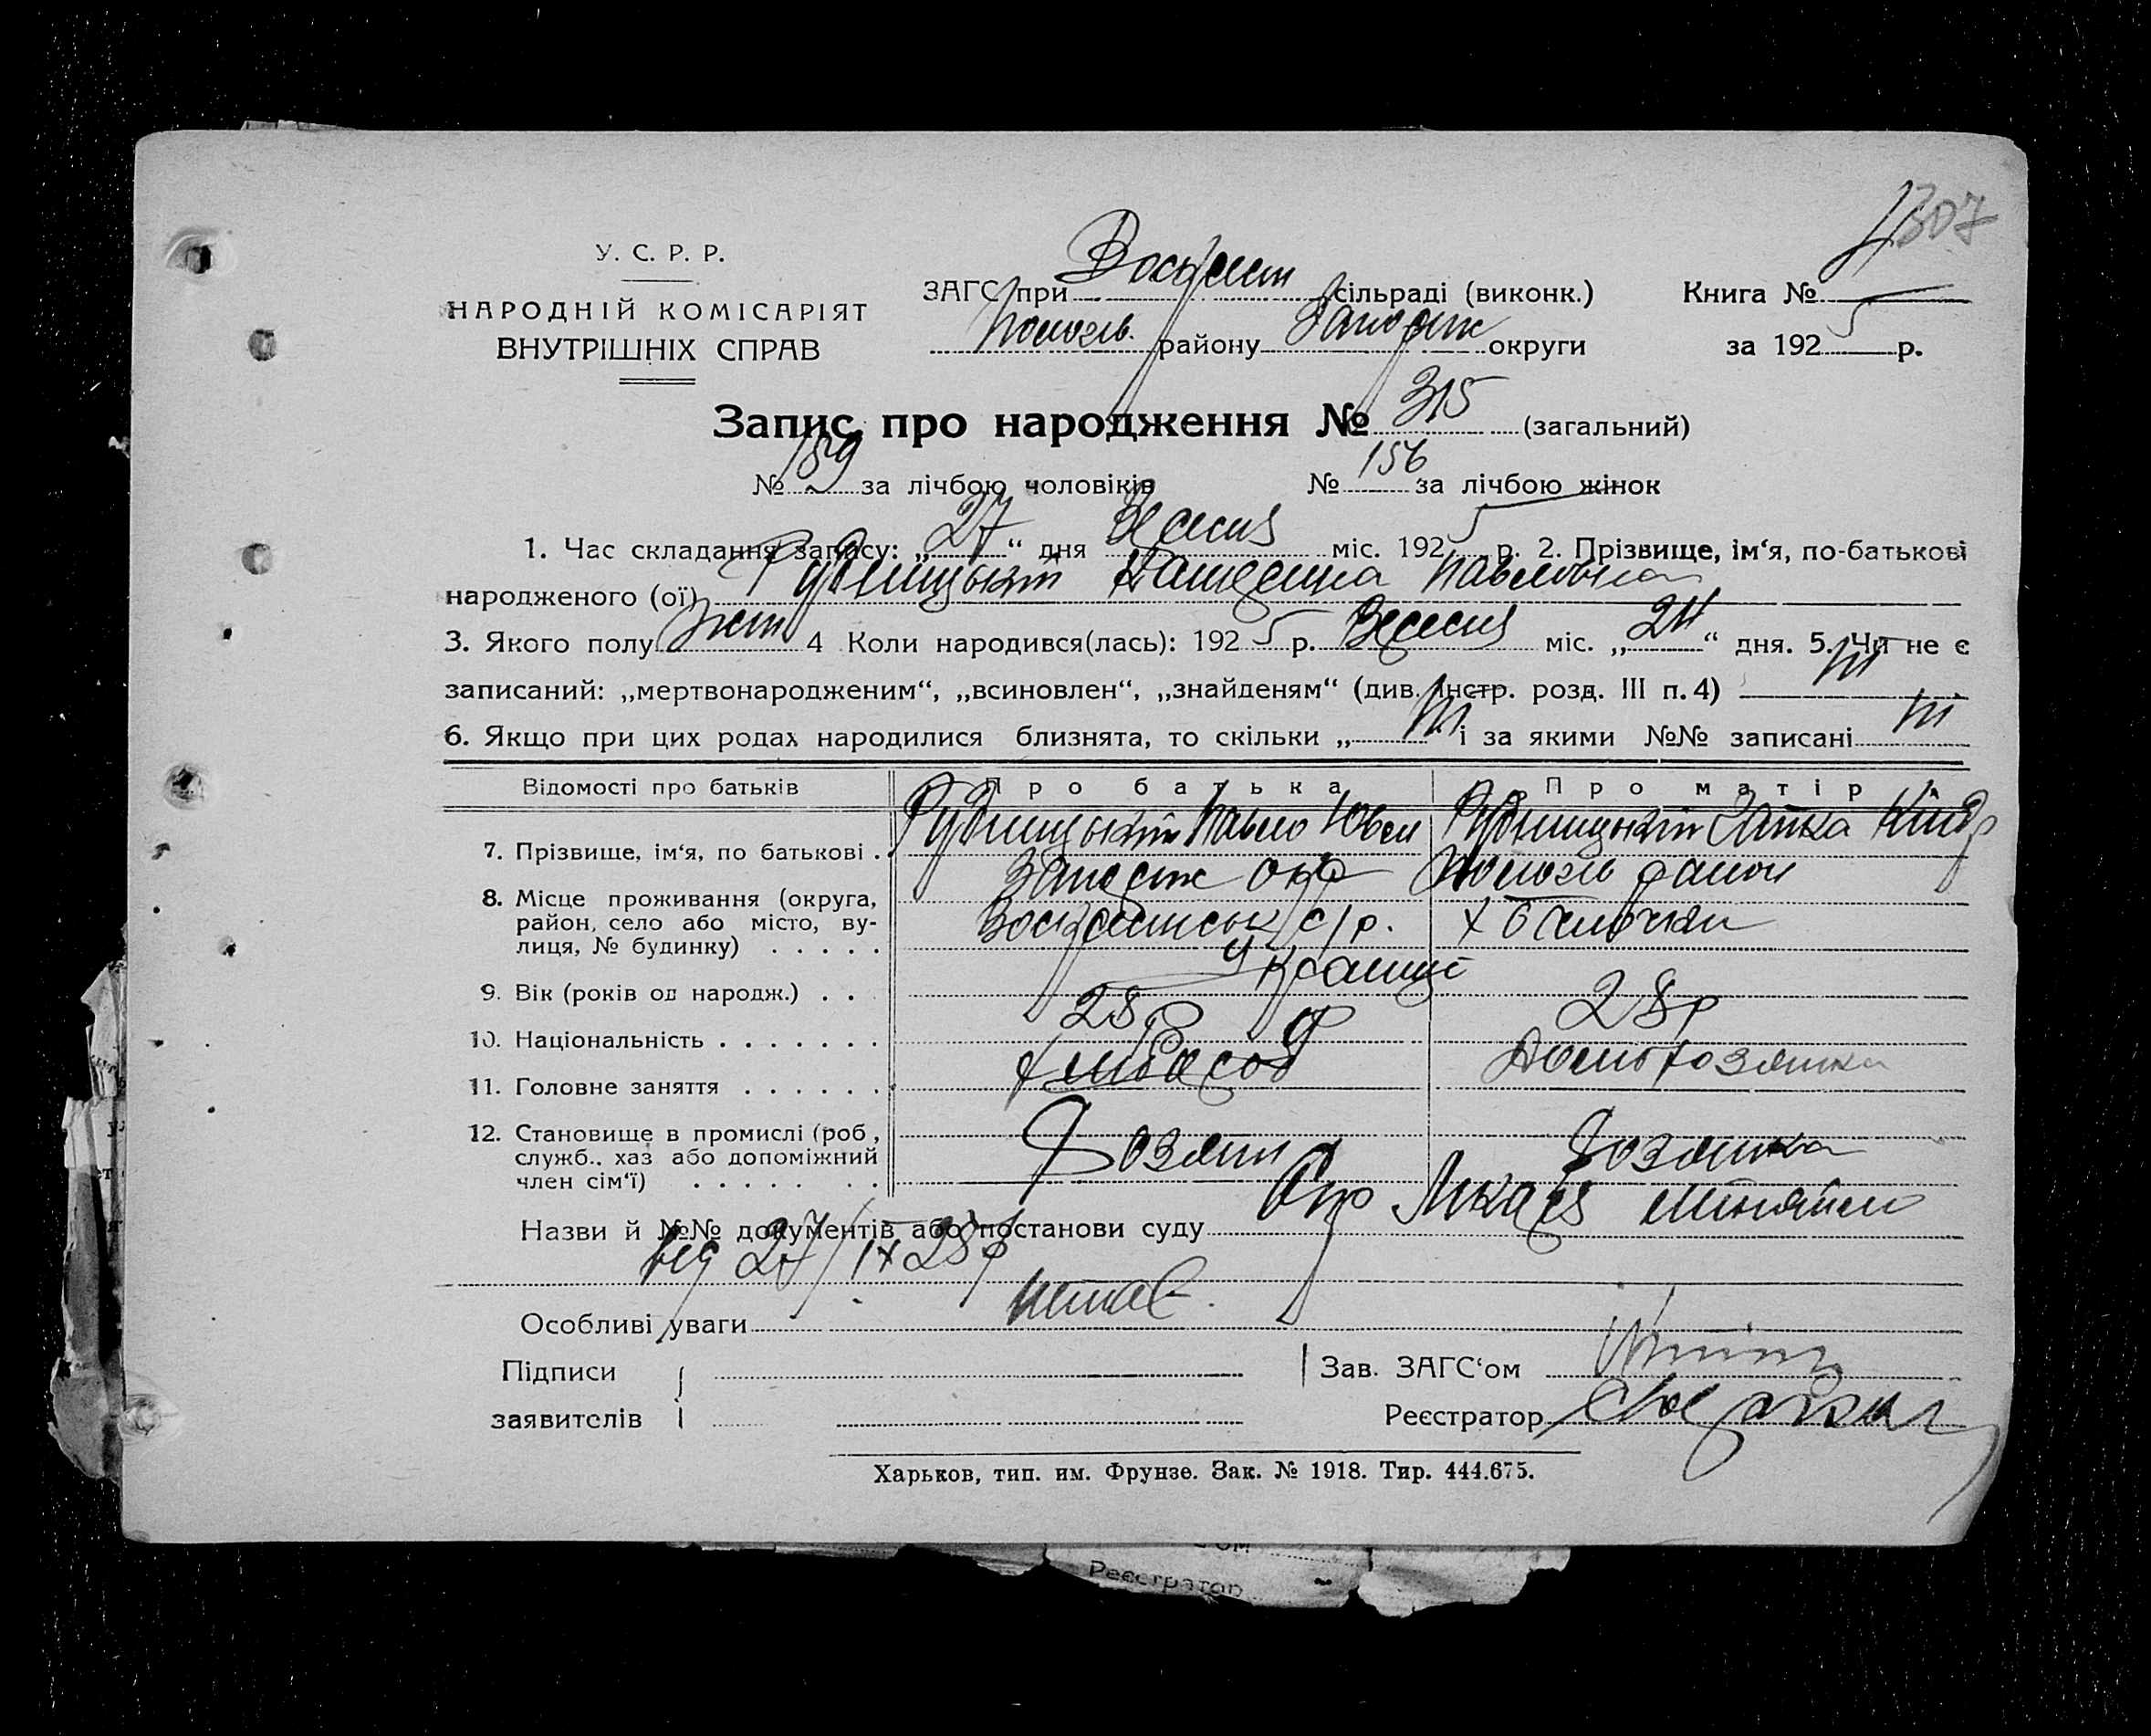 307
У. С. Р. Р.
НАРОДНІЙ КОМІСАРІЯТ
ВНУТРІШНІХ СПРАВ
ЗАГС при Воскресен сільраді (виконк.)
району Запоріж округи
Книга №
за 1925 р.
Запис про народження № 315 (загальний)
№ 159 за лічбою чоловіків № 156 за лічбою жінок
1. Час складання запасу: „27“ дня Вересня міс. 1925 р. 2. Прізвище, ім‘я, по-батькові
народженого (ої) Рудницький Павловна
3. Якого полу жін 4 Коли народився(лась): 1925 р. Вересня міс. „24“ дня. 5. Чи не є
записаний: „мертвонародженим“, „всиновлен“, „знайденям“ (див. Інстр. розд. III п. 4) ні
6. Якщо при цих родах народилися близнята, то скільки „ ні і за якими №№ записані ні
Відомості про батьків Про батька Про матір
7. Прізвище, ім‘я, по батькові . Рудницький Павло Рудницький
8. Місце проживання (округа,
район, село або місто, ву-
лиця, № будинку) . . . . .
Запоріж окр район
с/р.
9. Вік (років од народж.) . . 28 р 28 р
10. Національність . . . . . . . Українці
11. Головне заняття . . . . . . Хлібороб Домохозяйка
12. Становище в промислі (роб,
служб., хаз або допоміжний
член сім‘ї) . . . . . . .
Хозяин Хозяйка
Назви й №№ документів або постанови суду
від 27/IX 25 р
Особливі уваги Немає.
Підписи
заявителів
Зав. ЗАГС‘ом
Реєстратор
Харьков, тип. им. Фрунзе. Зак. № 1918. Тир. 444.675.
Реєстратор